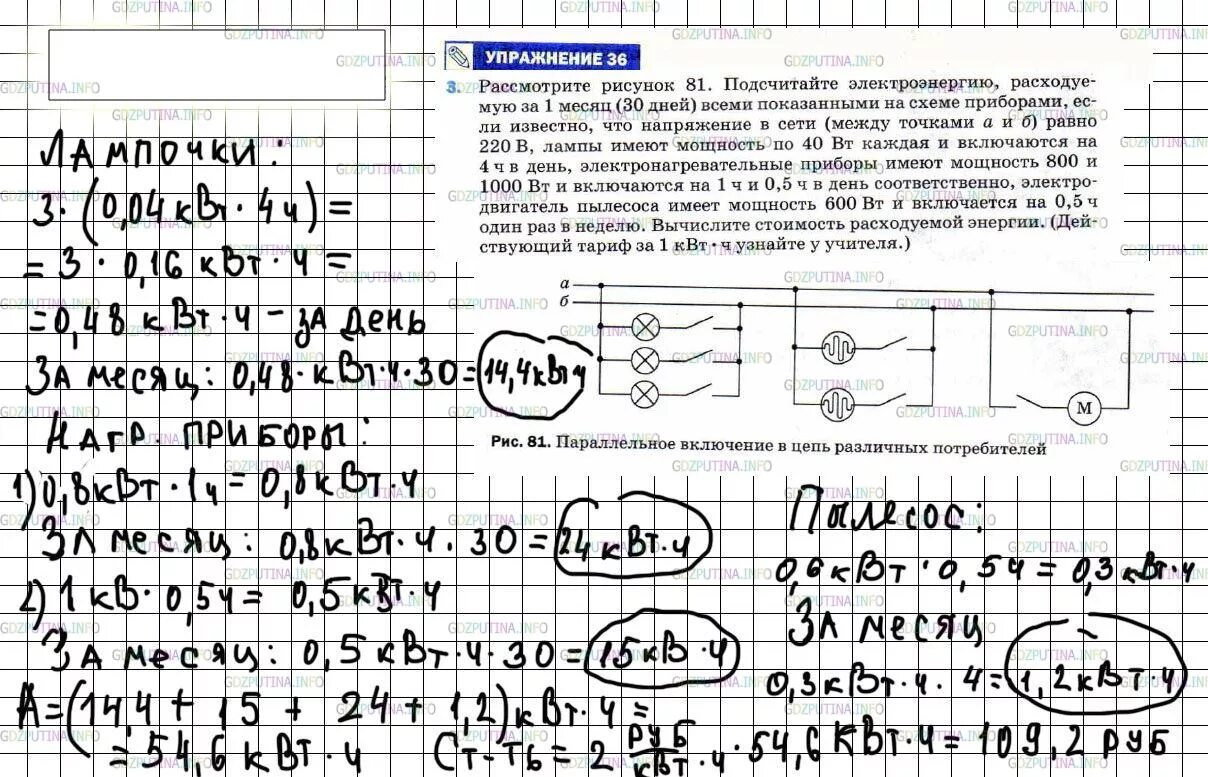 GDZPUTINA.INFO
УПРАЖНЕНИЕ 36
3. Рассмотрите рисунок 81. Подсчитайте электроэнергию, расходуе-
мую за 1 месяц (30 дней) всеми показанными на схеме приборами, ес-
ли известно, что напряжение в сети (между точками а и б) равно
220 В, лампы имеют мощность по 40 Вт каждая и включаются на
4 ч в день, электронагревательные приборы имеют мощность 800 и
1000 Вт и включаются на 1 ч и 0,5 ч в день соответственно, электро-
двигатель пылесоса имеет мощность 600 Вт и включается на 0,5 ч
один раз в неделю. Вычислите стоимость расходуемой энергии. (Дей-
ствующий тариф за 1 кВт · ч узнайте у учителя.)
а
б
М
Рис. 81. Параллельное включение в цепь различных потребителей
Лампочки:
3·(0,04кВт·4ч)=
=3·0,16кВт·ч=
=0,48кВт·ч - за день
За месяц: 0,48·кВт·ч·30=14,4кВтч
Нагр. приборы:
1) 0,8кВт·1ч=0,8кВт·ч
За месяц: 0,8кВт·ч·30=24кВт·ч
2) 1кВ·0,5ч=0,5кВт·ч
За месяц: 0,5кВт·ч·30=15кВ·ч
Пылесос:
0,6кВт·0,5ч=0,3кВт·ч
За месяц
0,3кВт·ч·4=1,2кВт·ч
А=(14,4+15+24+1,2)кВт·ч=
=54,6кВт·ч
Ст-ть=2 руб/кВт·ч·54,6кВт·ч=109,2руб